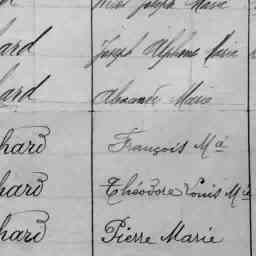 Joseph Marie
hard Joseph Alphonse Marie
hard Aimée Marie
hard François Mie
hard Théodore Louis Mie
hard Pierre Marie